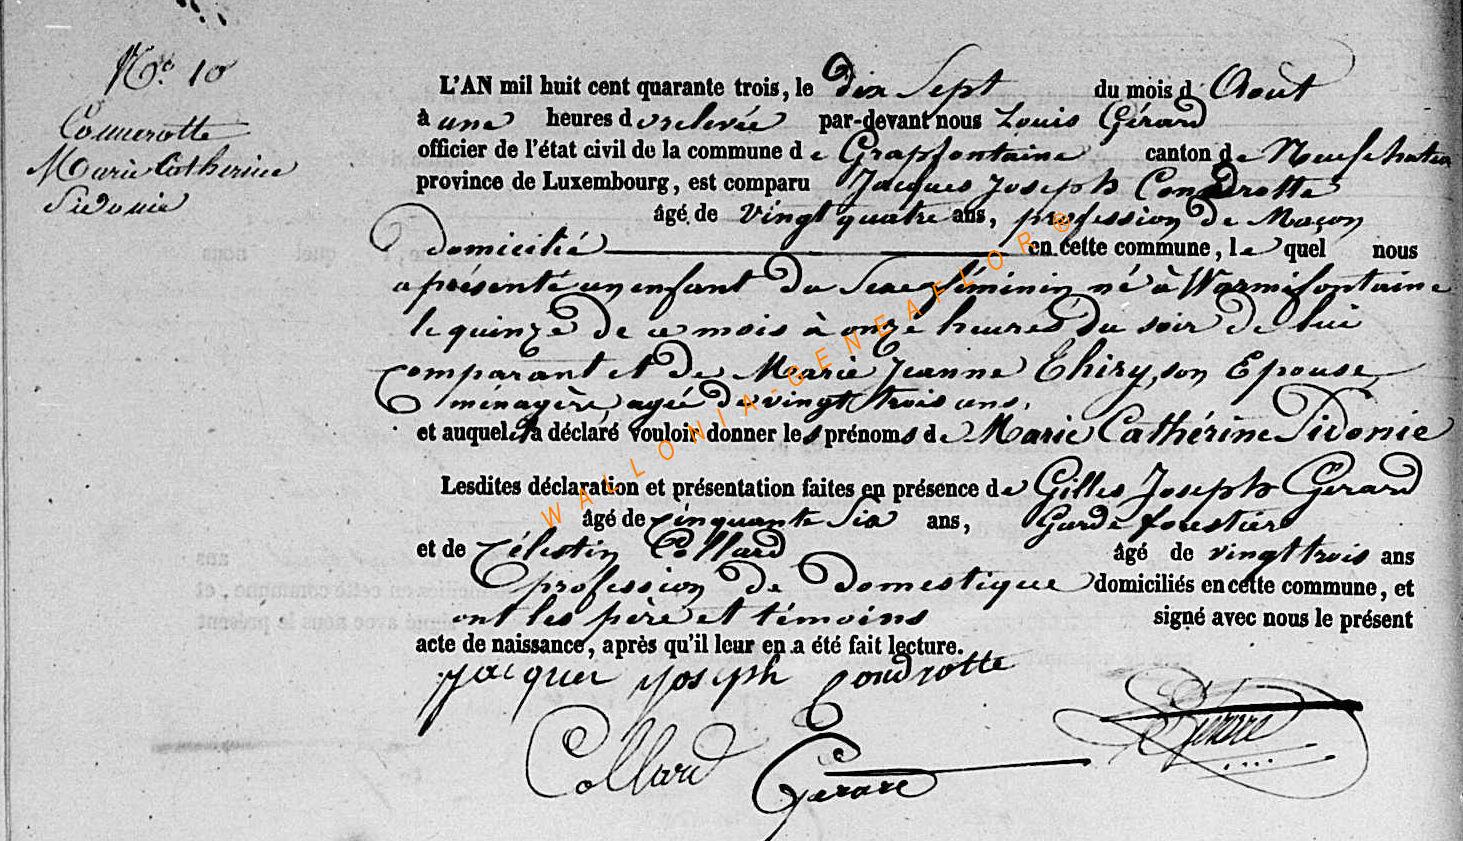 N.o 10
Connerotte
Marie Catherine
Sidonie
L'AN mil huit cent quarante trois, le dix Sept du mois d'Août
à une heures de relevée par-devant nous Louis Gérard
officier de l'état civil de la commune de Grapfontaine canton de Neufchateau
province de Luxembourg, est comparu Jacques Joseph Condrotte
âgé de vingt quatre ans, profession de Maçon
domicilié en cette commune, lequel nous
a présenté un enfant du Sexe féminin né à Warmifontaine
le quinze de ce mois à onze heures du soir de lui
comparant et de Marie Jeanne Thiry, son Epouse,
ménagère, agée de vingt trois ans,
et auquel il a déclaré vouloir donner les prénoms de Marie Cathérine Sidonie
Lesdites déclaration et présentation faites en présence de Gilles Joseph Gérard
âgé de cinquante Six ans, Garde forestier
et de Célestin Collard âgé de vingt trois ans
profession de domestique domiciliés en cette commune, et
ont les père et témoins signé avec nous le présent
acte de naissance, après qu'il leur en a été fait lecture.
Jacques Joseph Condrotte
Collard Gérard Gérard
WALLONIA-GENEAFLOR®